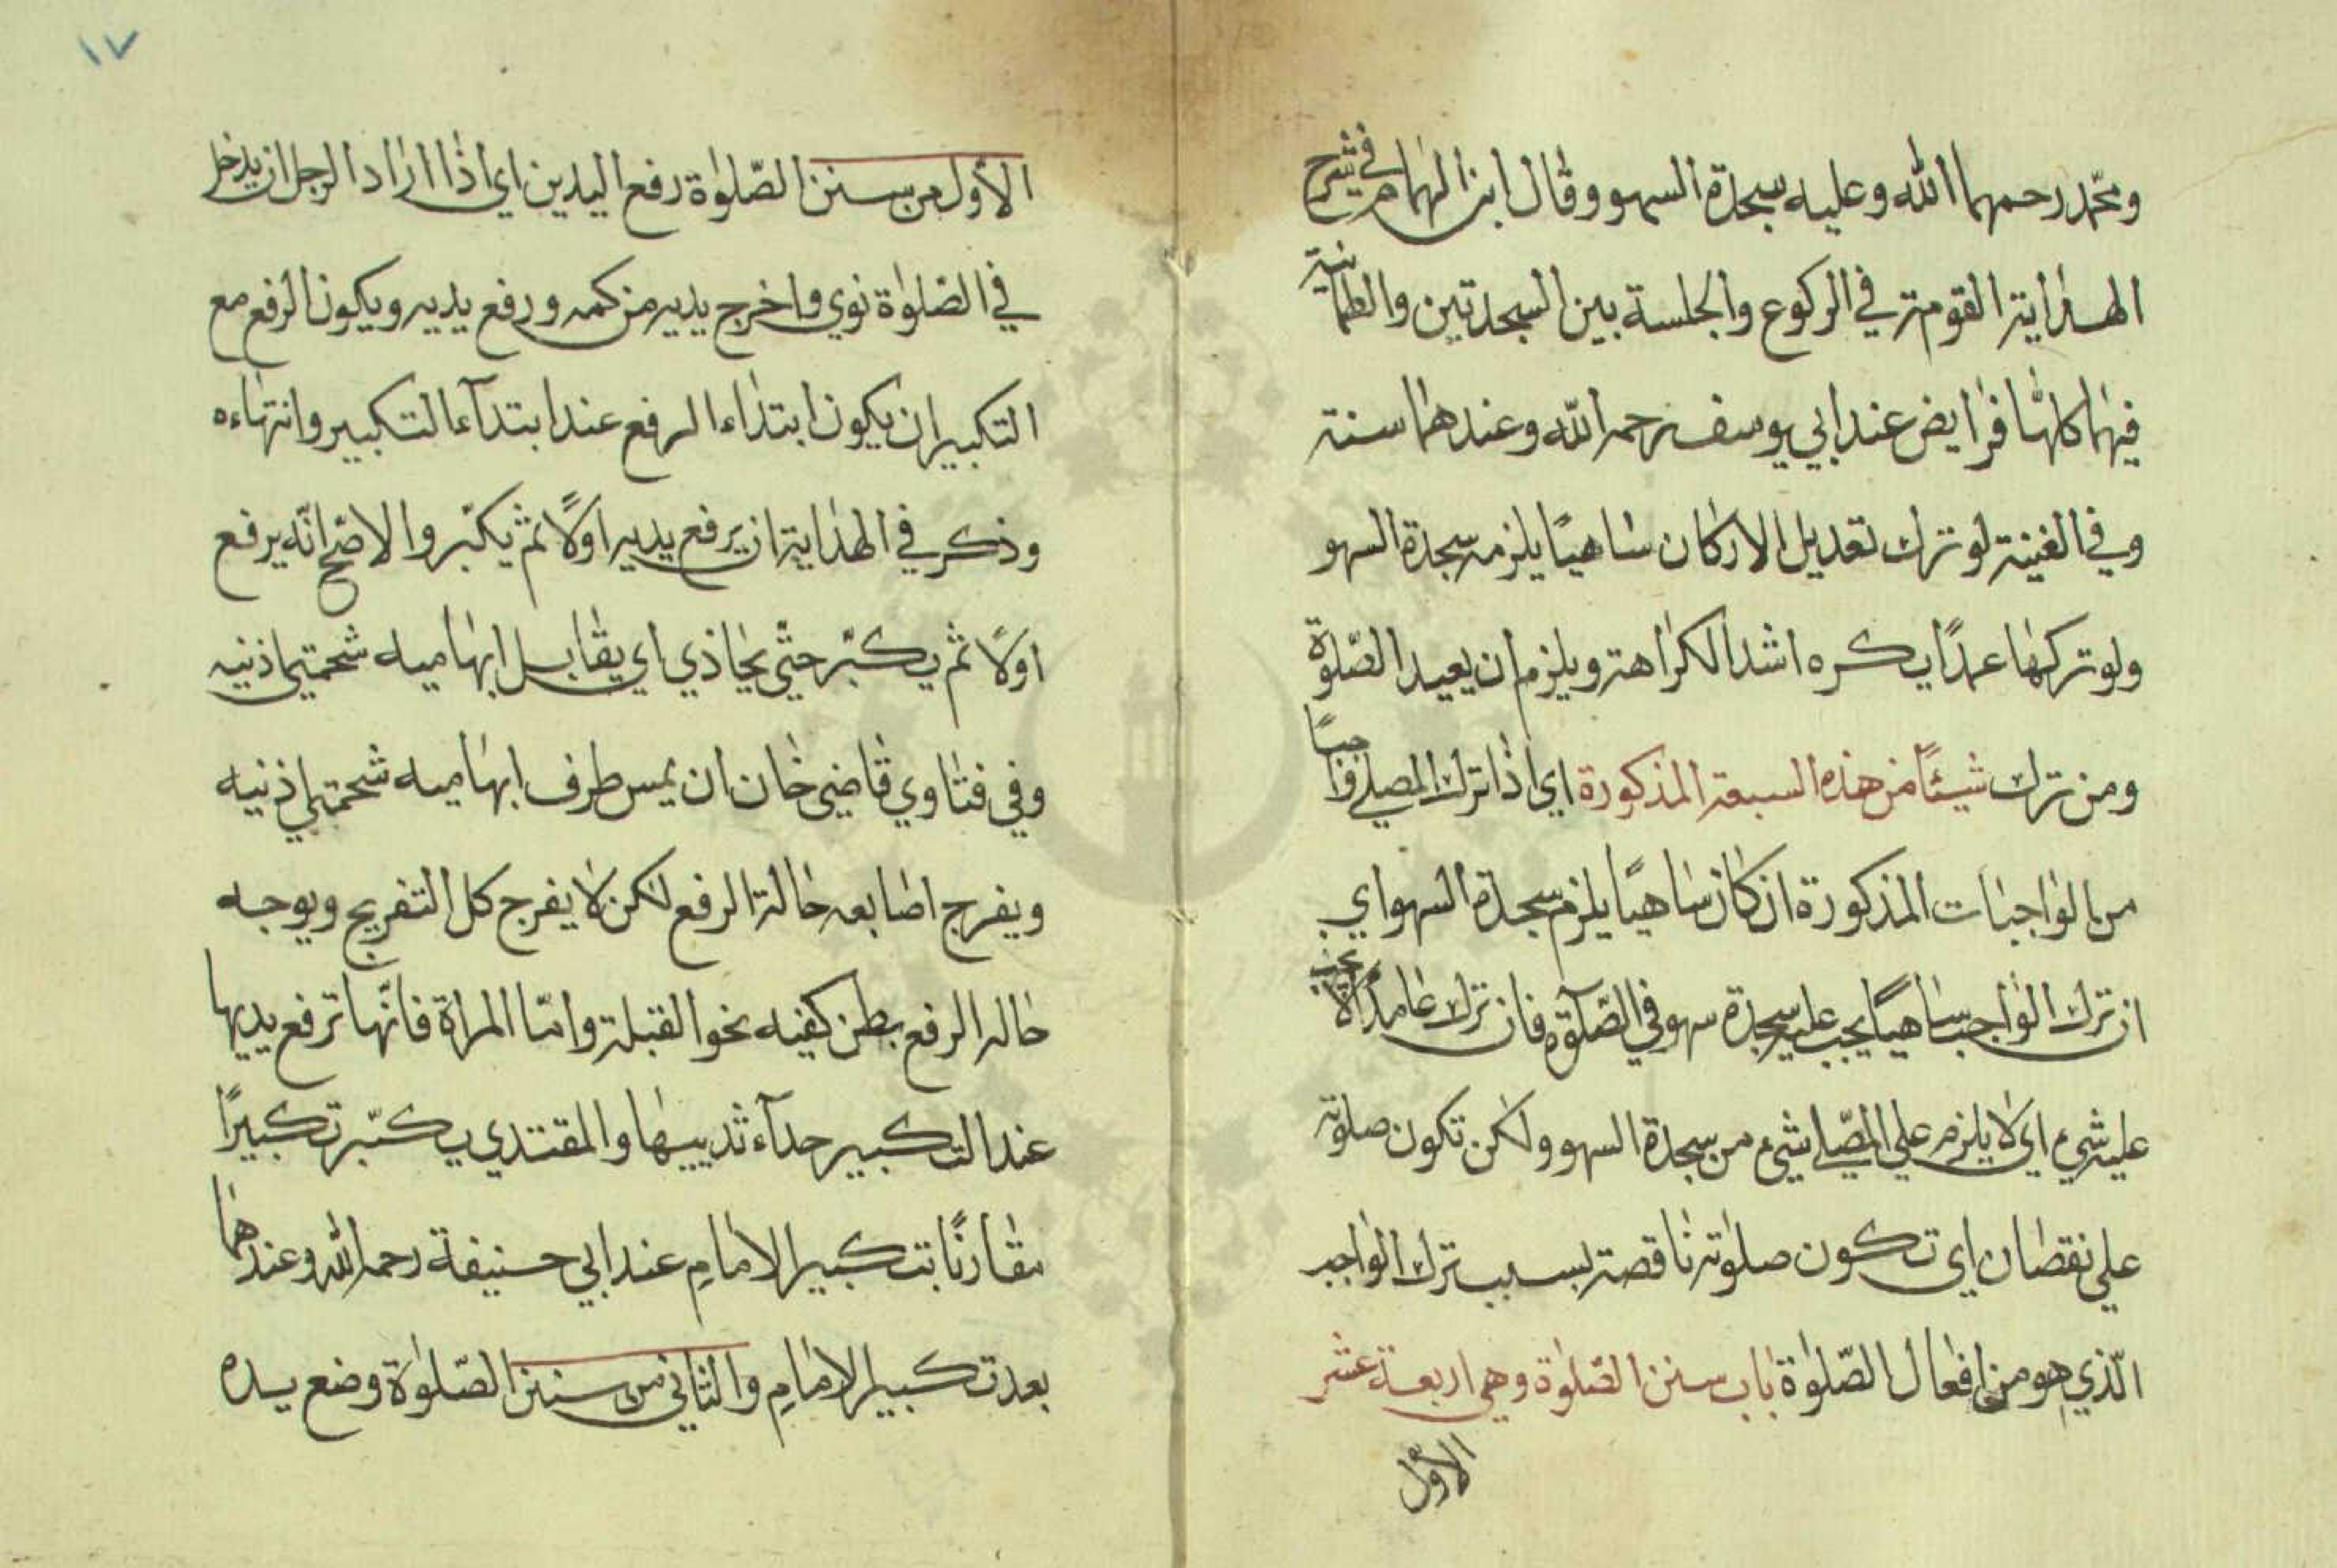 ومحمد رحمهما الله وعليه سجدة السهو وقال ابن الهمام في شرح
الهداية القومة في الركوع والجلسة بين السجدتين والطمأنينة
فيهما كلها فرايض عند ابي يوسف رحمه الله وعندهما سنة
وفي الغنية لو ترك تعديل الاركان ساهيًا يلزمه سجدة السهو
ولو تركها عمدًا يكره اشد الكراهة ويلزم ان يعيد الصّلوة
ومن ترك شيئًا من هذه السبعة المذكورة اي اذا ترك المصلي واجبًا
من الواجبات المذكورة ان كان ساهيًا يلزم سجدة السهو اي
ان ترك الواجب ساهيًا يجب عليه سجدة سهو في الصّلوة فان ترك عامدًا لا يجب
عليه شيء اي لا يلزم علي المصّلي شيء من سجدة السهو ولكن تكون صلوته
علي نقصان اي تكون صلوته ناقصة بسبب ترك الواجب
الّذي هو من افعال الصّلوة باب سنن الصّلوة وهي اربعة عشر
الاوّل
١٧
الاوّل من سنن الصّلوة رفع اليدين اي اذا اراد الرجل ان يدخل
في الصّلوة نوي واخرج يديه من كمه ورفع يديه ويكون الرفع مع
التكبير ان يكون ابتداء الرفع عند ابتدآء التكبير وانتهاءه
وذكر في الهداية ان يرفع يديه اولًا ثم يكبّر والاصّح انّه يرفع
اولًا ثم يكبّر حتّي يحاذي اي يقابل ابهاميه شحمتي اذنيه
وفي فتاوي قاضي خان ان يمس طرف ابهاميه شحمتي اذنيه
ويفرج اصابعه حالة الرفع لكن لا يفرج كل التفريج ويوجه
حاله الرفع بطن كفيه نحو القبلة وامّا المراة فانّها ترفع يديها
عند التكبير حدآء ثدييها والمقتدي يكبّر تكبيرًا
مقارنًا بتكبير الامام عند ابي حنيفة رحمه الله وعندهما
بعد تكبير الامام والثاني من سنن الصّلوة وضع يده